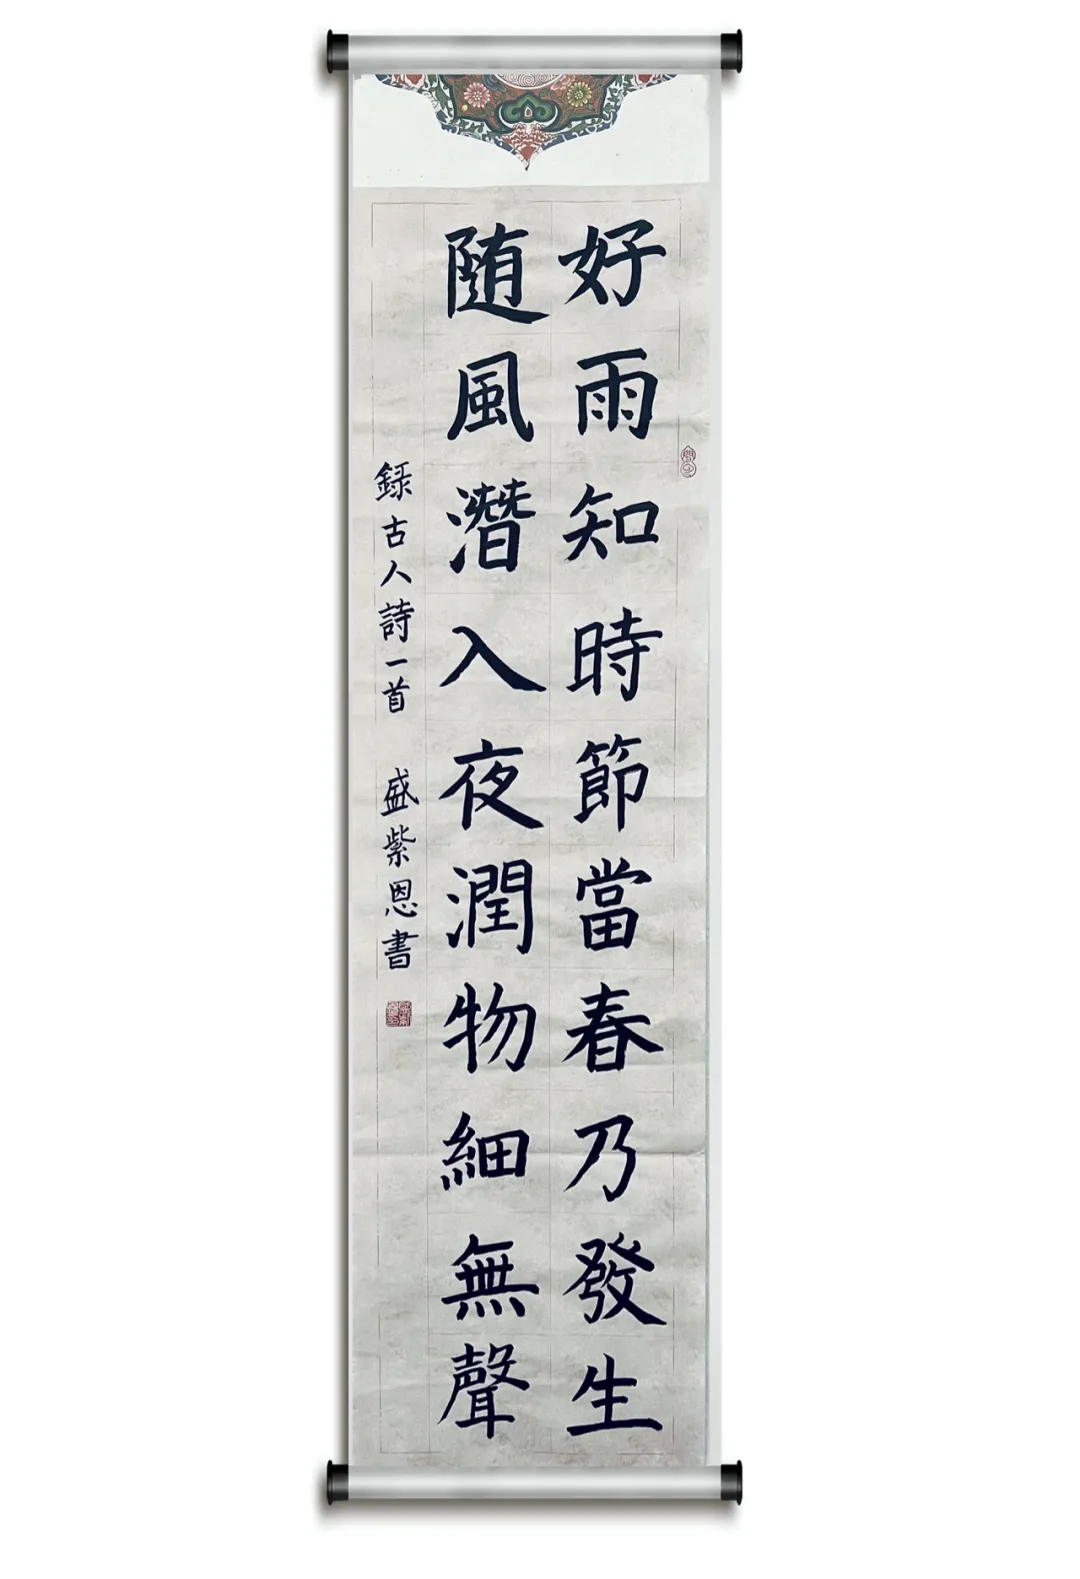 好雨知時節當春乃發生
随風潛入夜潤物細無聲
録古人詩一首 盛紫恩書